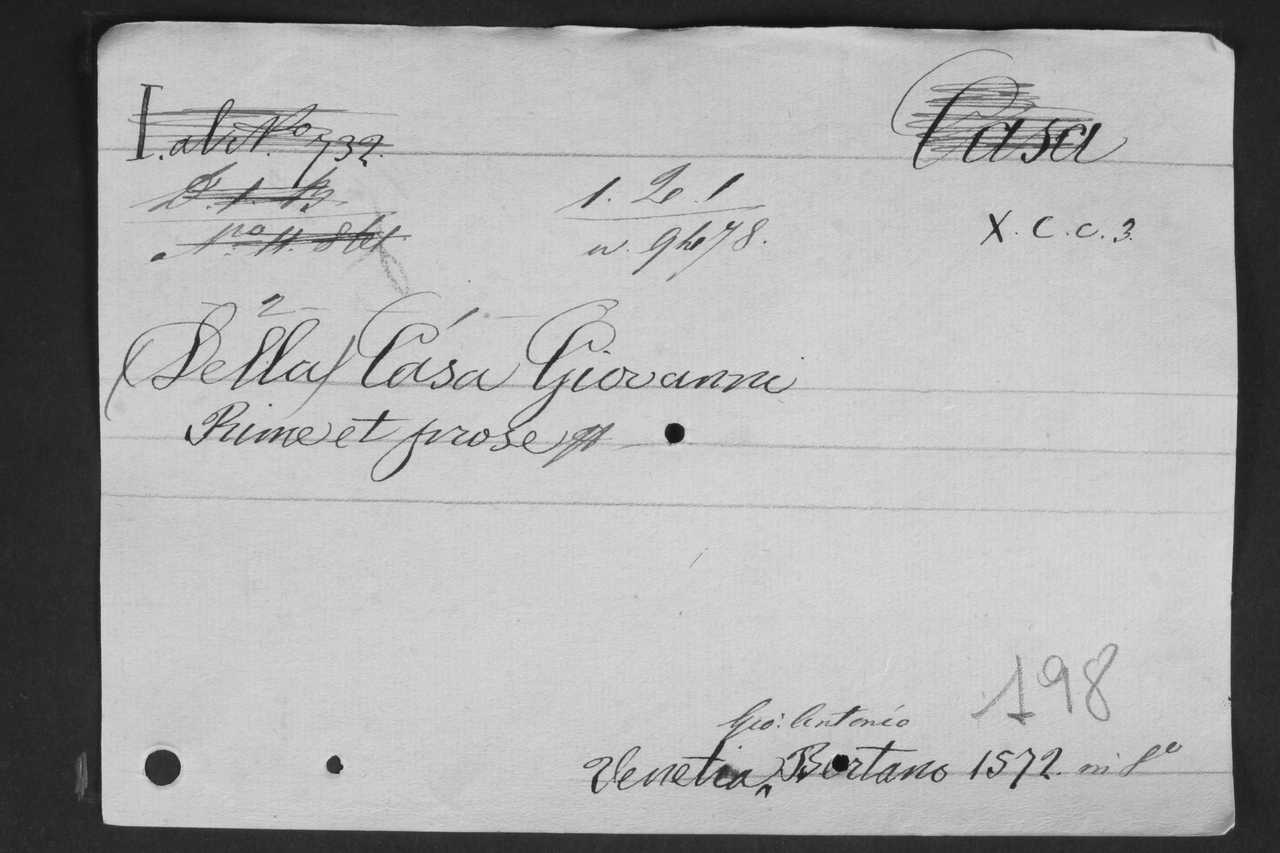 Casa
732.
1. 2. 1
X. C. c. 3.
2 1
(Della) Casa Giovanni
Rime et prose
198
Gio: Antonio
Venetia, Bertano 1572. in 8º